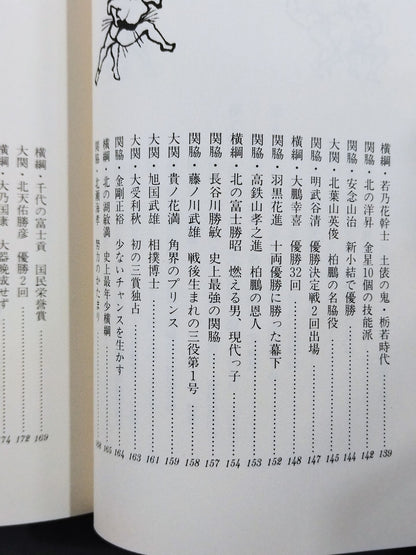 横綱・若乃花幹士 土俵の鬼・栃若時代 139
関脇・北の洋昇 金星10個の技能派 142
関脇・安念山治 新小結で優勝 144
大関・北葉山英俊 柏鵬の名脇役 145
関脇・明武谷清 優勝決定戦2回出場 147
横綱・大鵬幸喜 優勝32回 148
関脇・羽黒花進 十両優勝に勝った幕下 152
関脇・高鉄山孝之進 柏鵬の恩人 153
横綱・北の富士勝昭 燃える男、現代っ子 154
関脇・長谷川勝敏 史上最強の関脇 157
関脇・藤ノ川武雄 戦後生まれの三役第1号 158
大関・貴ノ花満 角界のプリンス 159
大関・旭国武雄 相撲博士 161
大関・大受利秋 初の三賞独占 163
関脇・金剛正裕 少ないチャンスを生かす 164
横綱・北の湖敏満 史上最年少横綱 165
関脇・北瀬海 努力のかたまり 168
横綱・千代の富士貢 国民栄誉賞 169
大関・北天佑勝彦 優勝2回 172
横綱・大乃国康 大器晩成せず 174